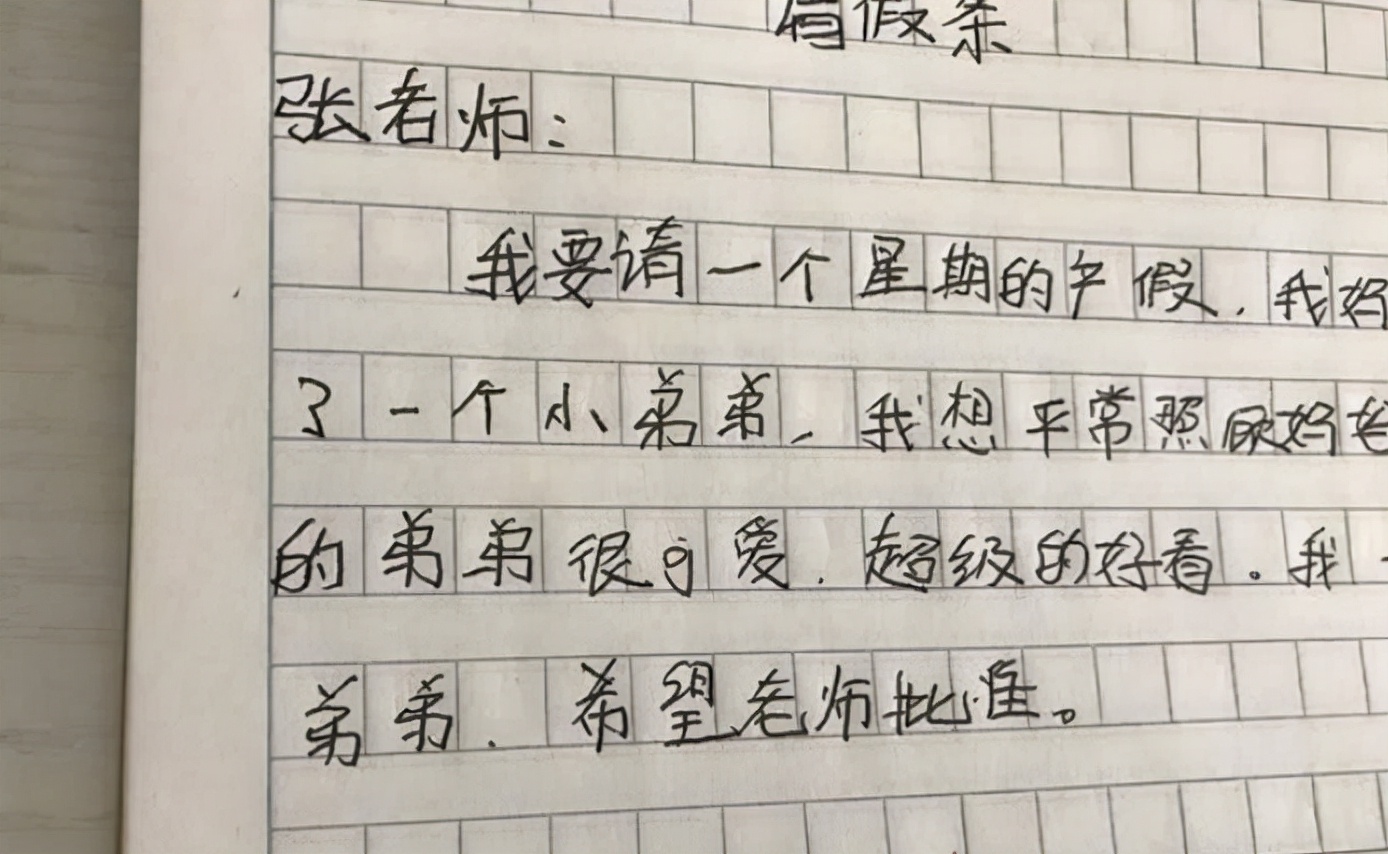 假条
张老师：
我要请一个星期的产假，我妈
了一个小弟弟，我想平常照顾妈妈
的弟弟很可爱，超级的好看。我
弟弟，希望老师批准。